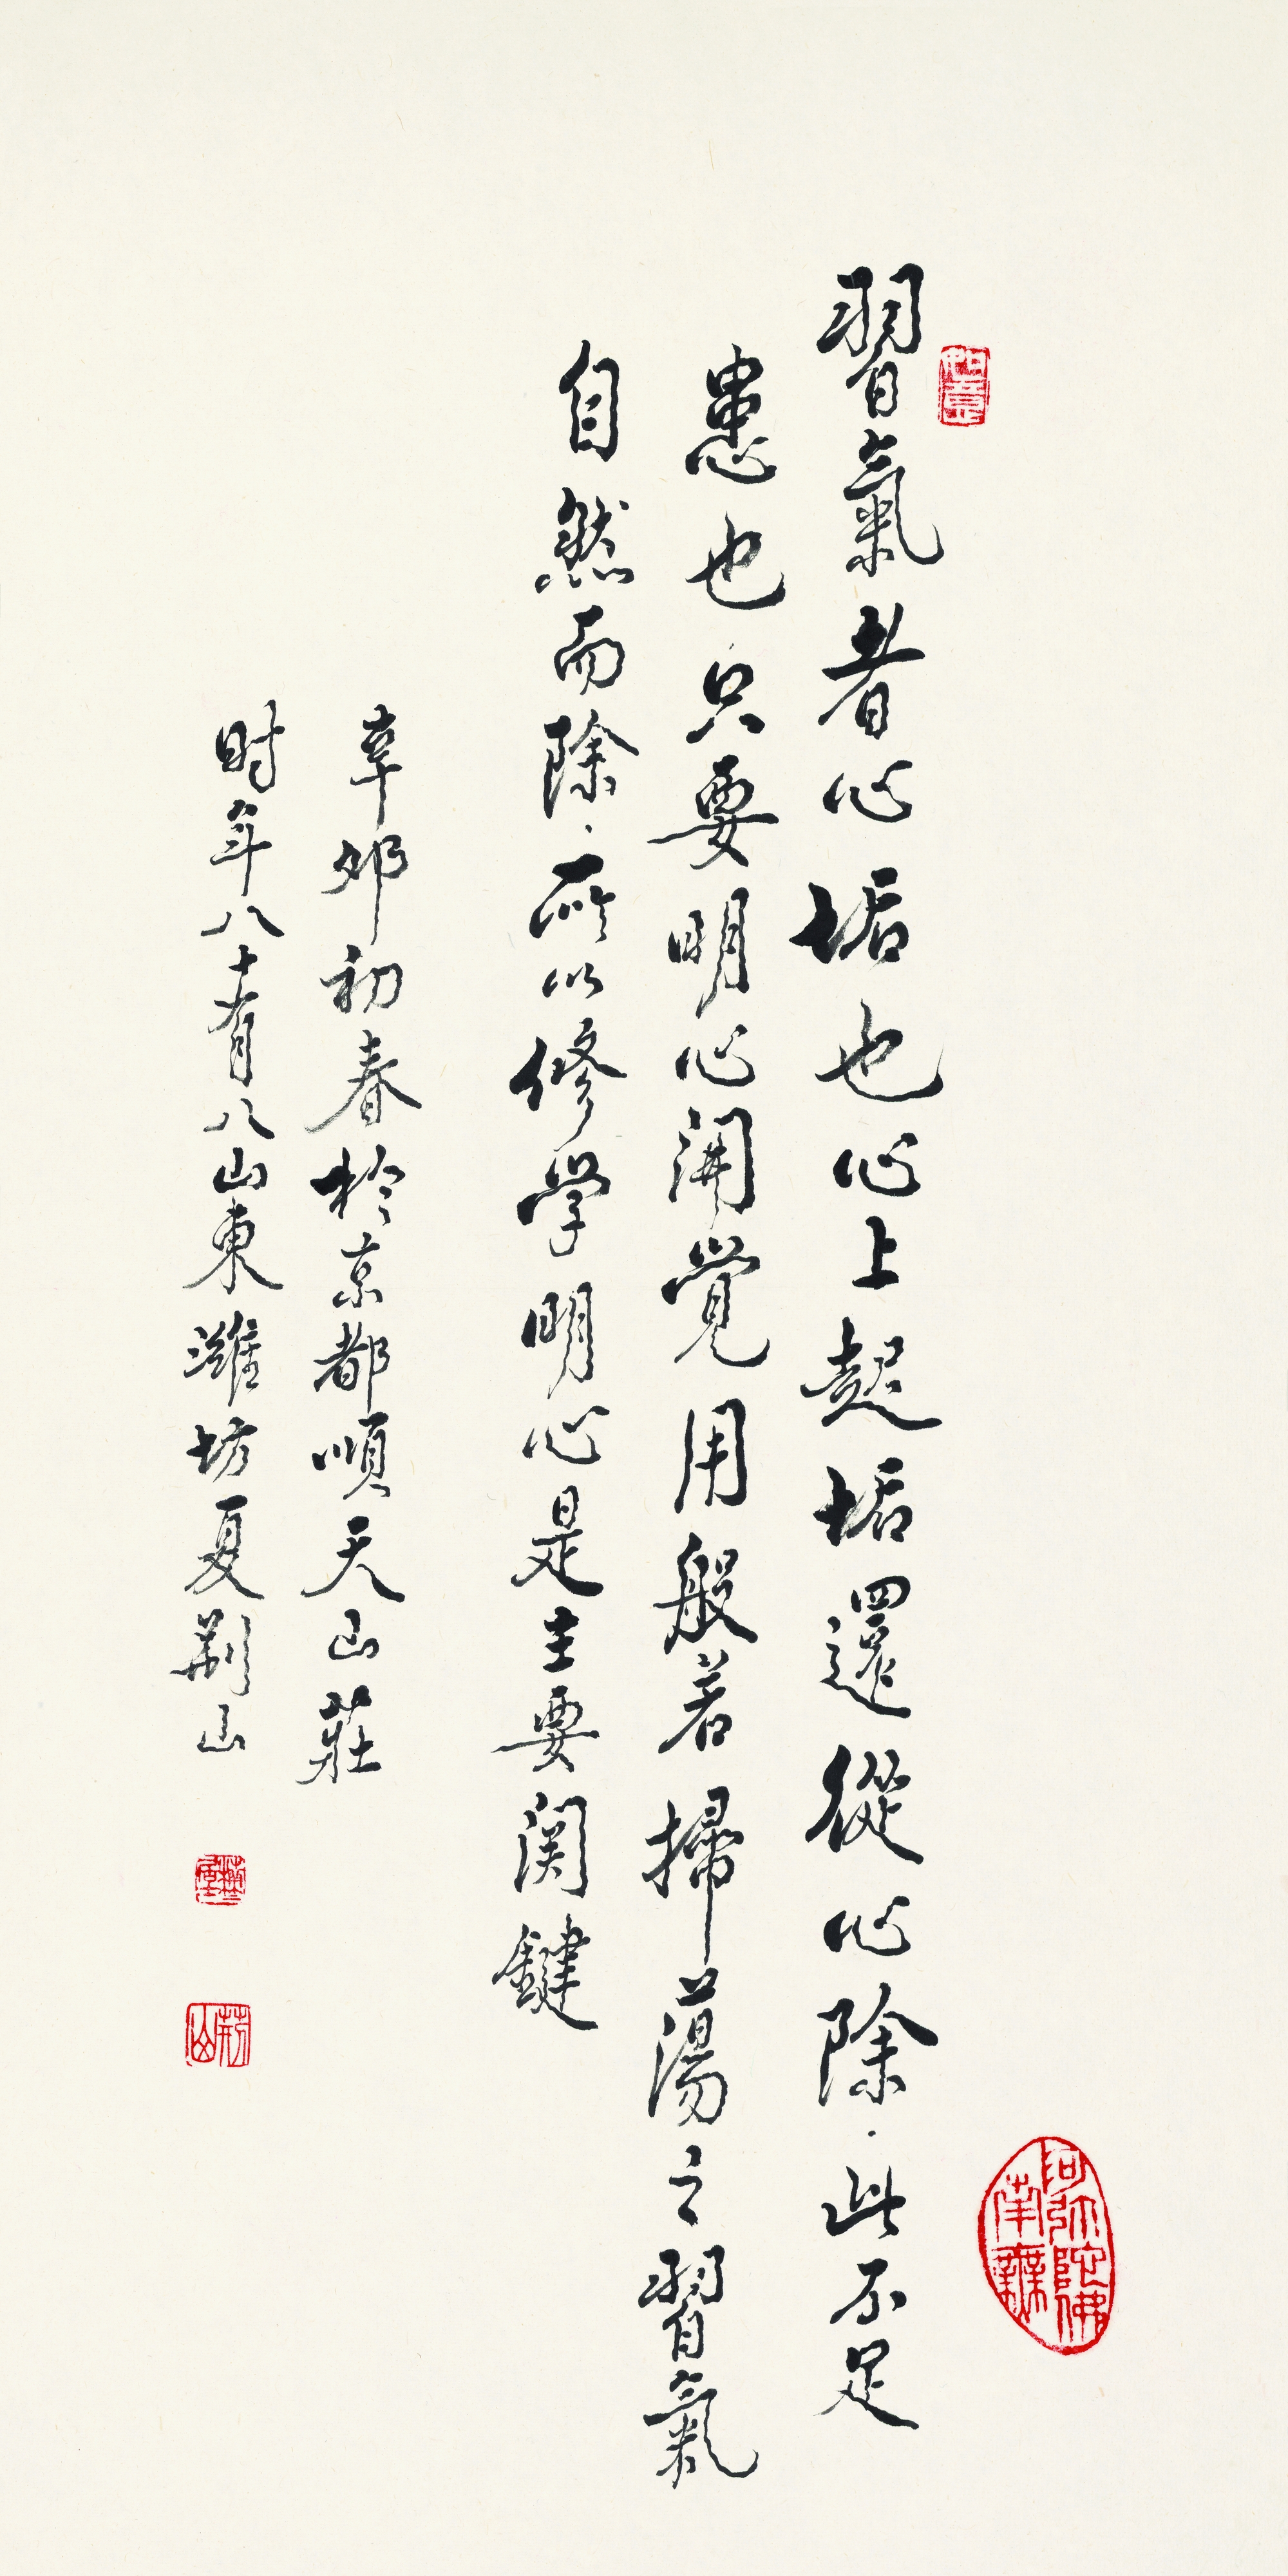 習氣者心垢也心上起垢還從心除.此不足
患也只要明心開覺用般若掃蕩之習氣
自然而除.所以修学明心是主要関鍵
辛卯初春於京都順天山莊
时年八十有八山東濰坊夏荆山
如意
阿弥陀佛
南無
荆山